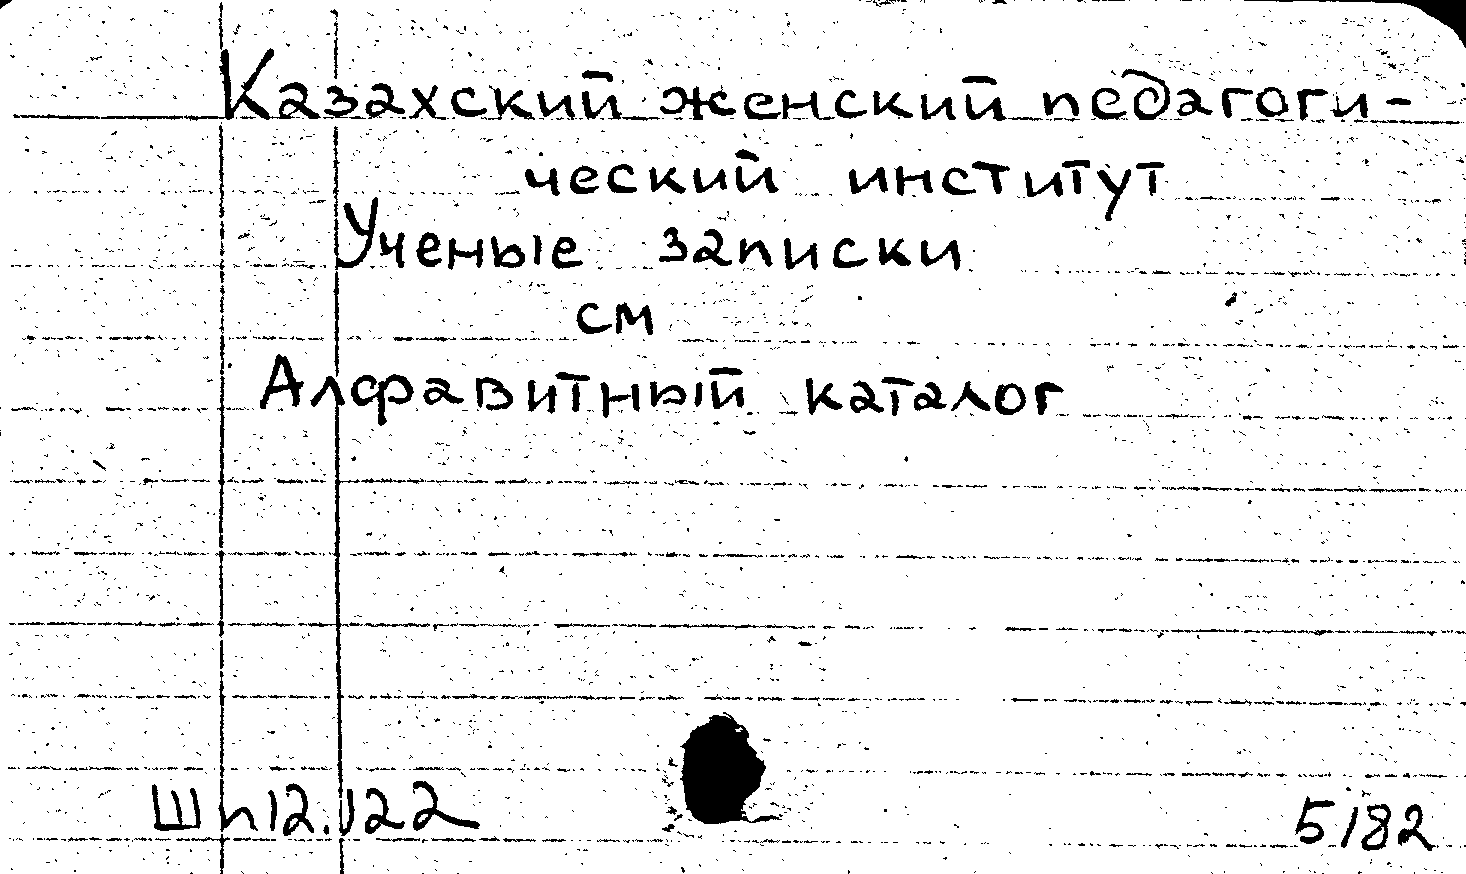 Казахский женский педагоги-
ческий институт
Ученые записки
см
Алфавитный каталог
Шп12.122
5/82